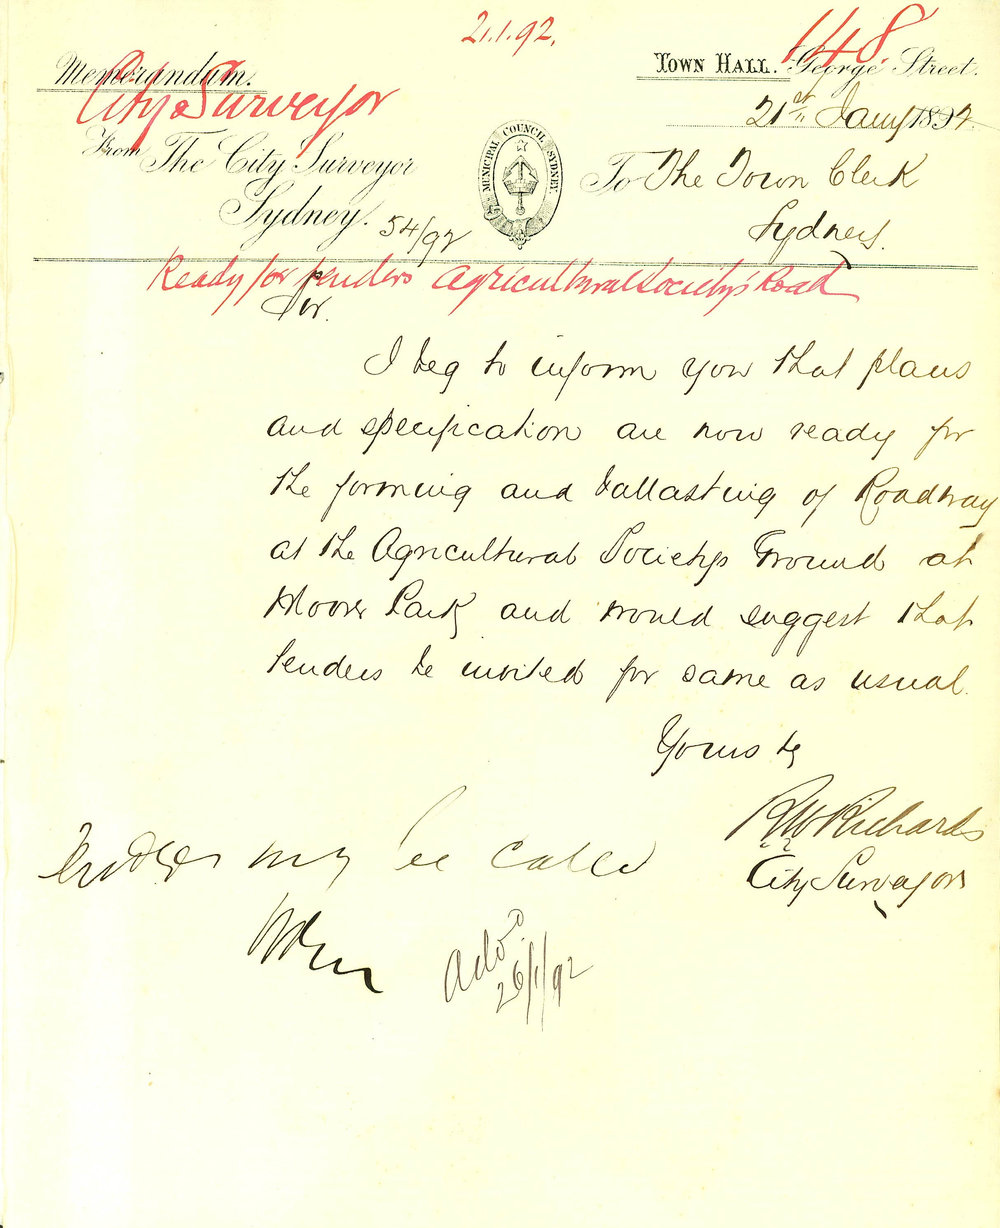 21.1.92.
148.
Memorandum.
City Surveyor
TOWN HALL. George Street.
21st Jany 1892
From The City Surveyor
Sydney.
54/92
MUNICIPAL COUNCIL SYDNEY.
To The Town Clerk
Sydney.
Ready for tenders Agricultural Society's Road
Sir.
I beg to inform you that plans
and specification are now ready for
the forming and ballasting of Roadway
at the Agricultural Society's Ground at
Moore Park and would suggest that
tenders be invited for same as usual.
Yours
RW Richards
City Surveyor
Tenders may be called
Adv.d
26/1/92